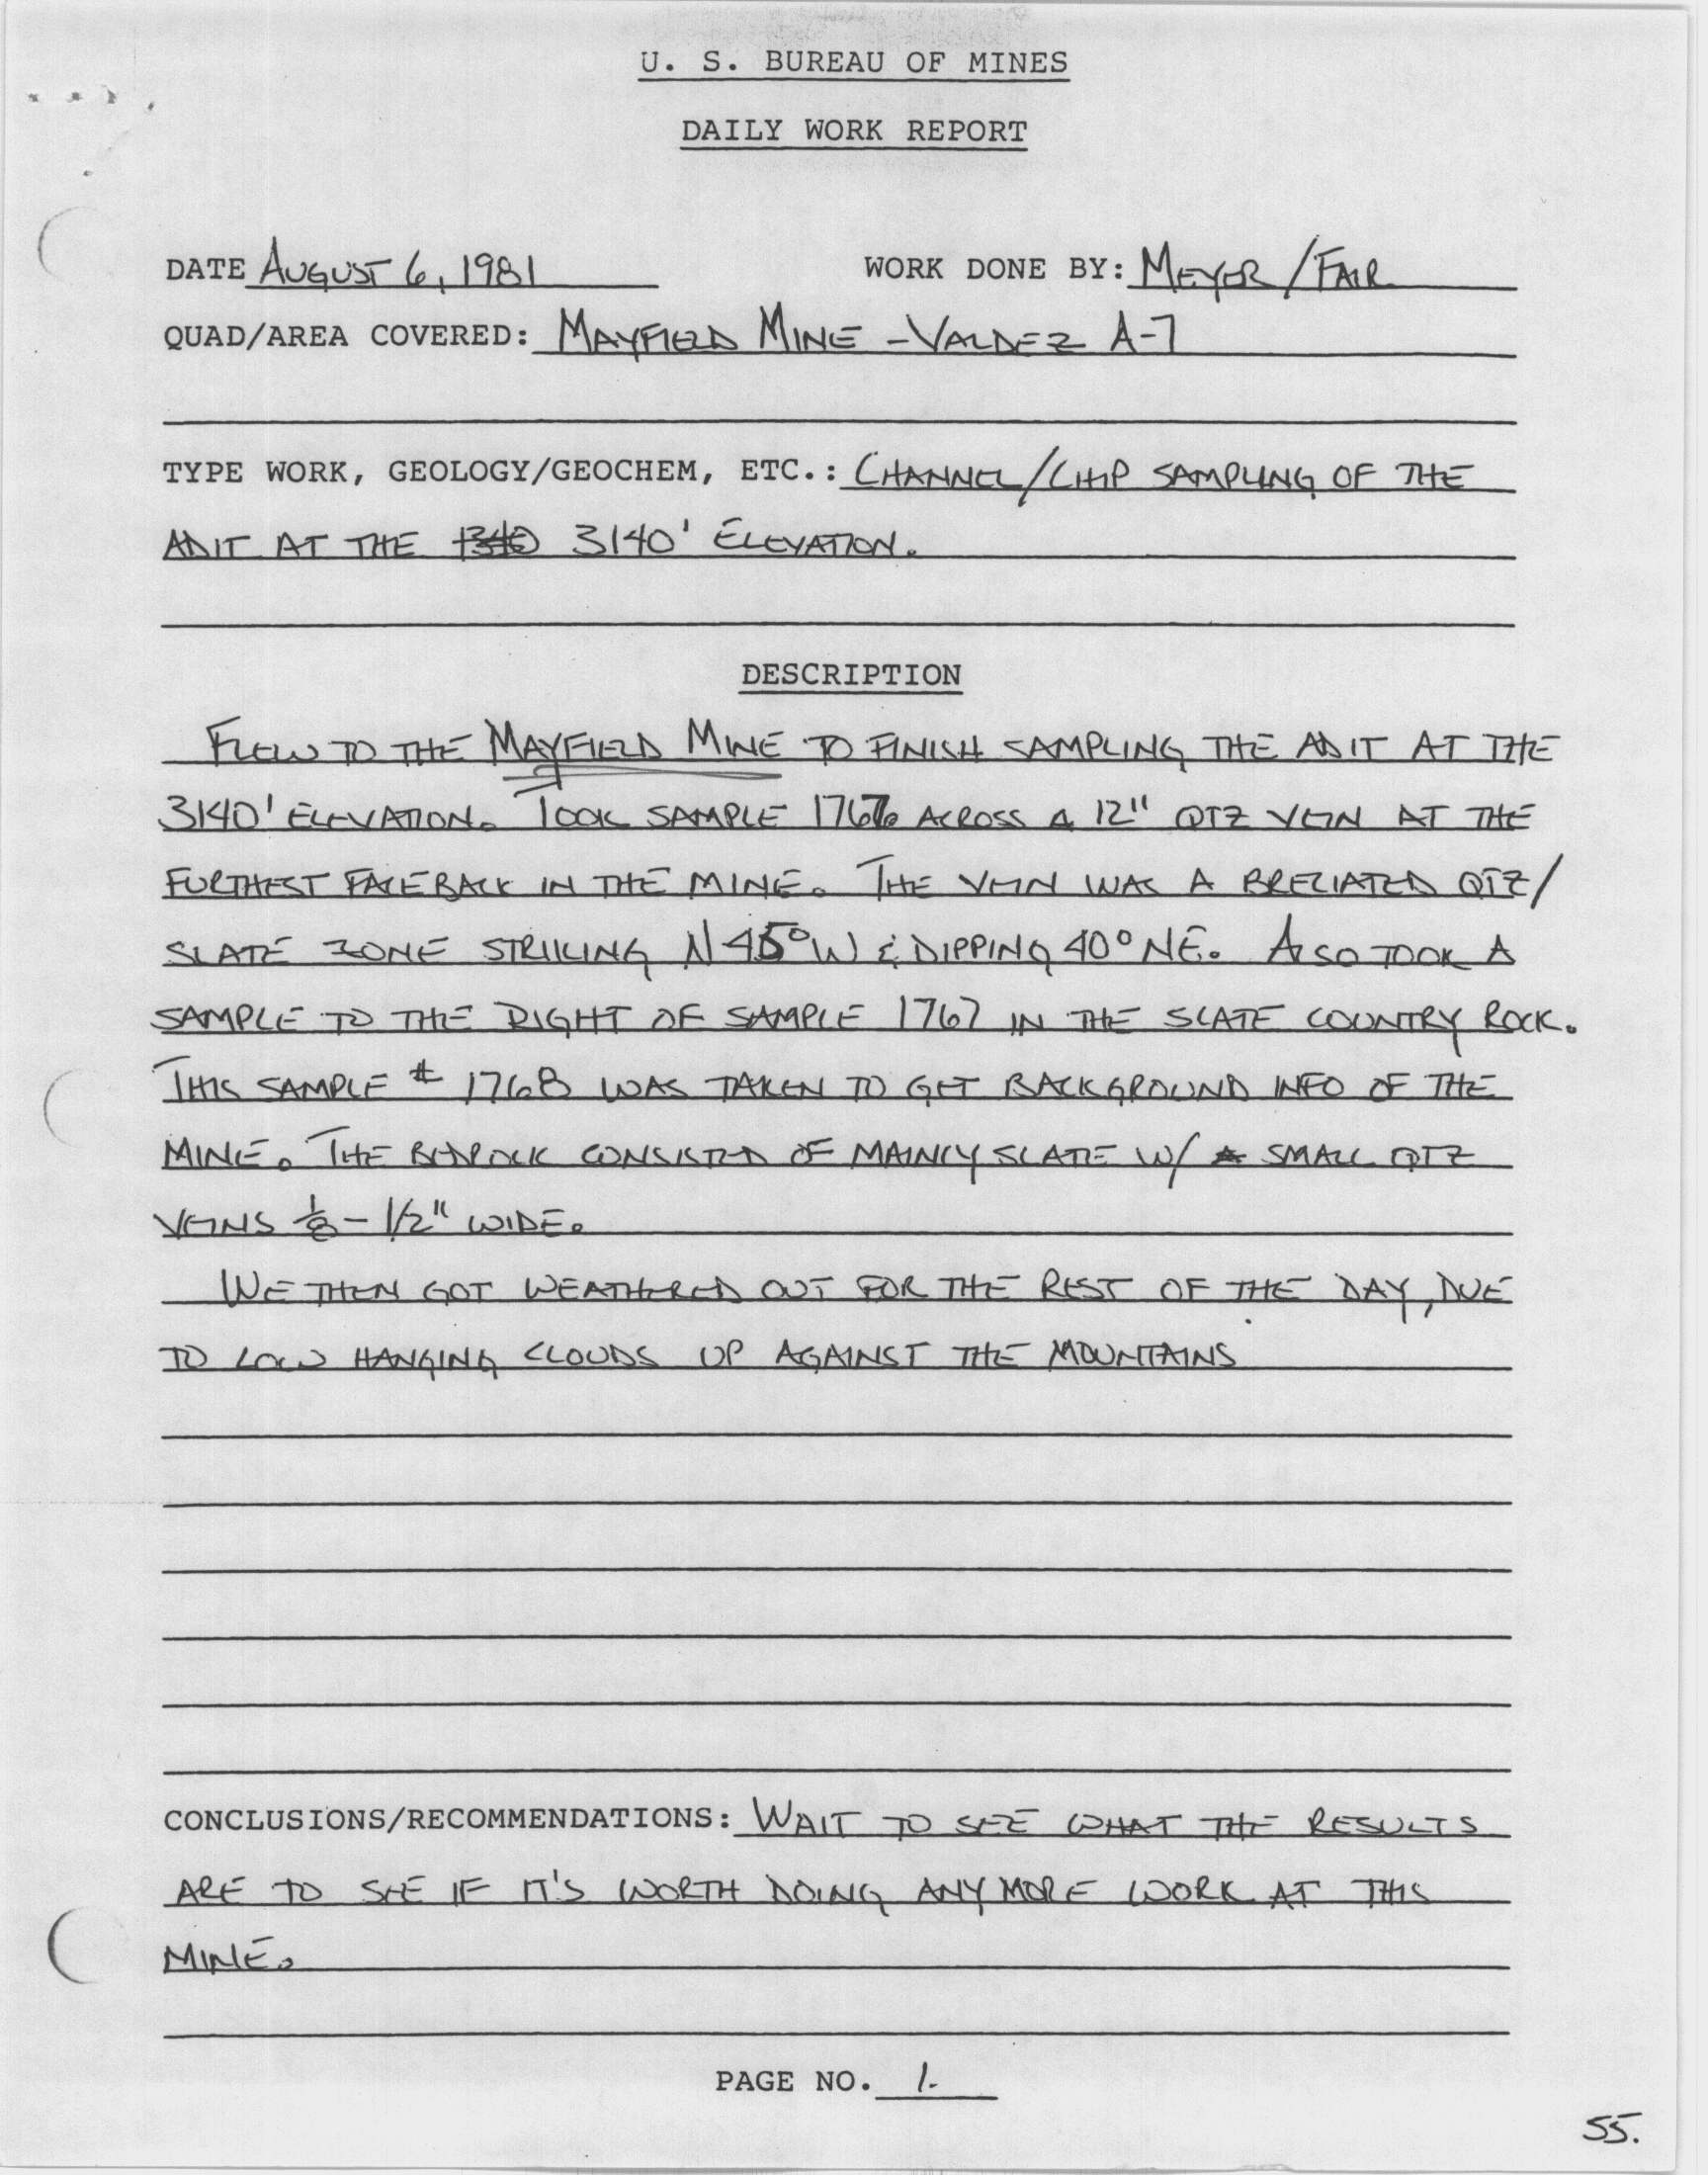 U. S. BUREAU OF MINES
DAILY WORK REPORT
DATE AUGUST 6, 1981 WORK DONE BY: MEYER/FAIR
QUAD/AREA COVERED: MAYFIELD MINE - VALDEZ A-7
TYPE WORK, GEOLOGY/GEOCHEM, ETC.: CHANNEL/CHIP SAMPLING OF THE
ADIT AT THE 3140' ELEVATION.
DESCRIPTION
FLEW TO THE MAYFIELD MINE TO FINISH SAMPLING THE ADIT AT THE
3140' ELEVATION. TOOK SAMPLE 1767 ACROSS A 12" QTZ VEIN AT THE
FURTHEST FACE BACK IN THE MINE. THE VEIN WAS A BRECIATED QTZ/
SLATE ZONE STRIKING N 45° W & DIPPING 40° NE. ALSO TOOK A
SAMPLE TO THE RIGHT OF SAMPLE 1767 IN THE SLATE COUNTRY ROCK.
THIS SAMPLE # 1768 WAS TAKEN TO GET BACKGROUND INFO OF THE
MINE. THE BEDROCK CONSISTED OF MAINLY SLATE W/ SMALL QTZ
VEINS 1/8 - 1/2" WIDE.
WE THEN GOT WEATHERED OUT FOR THE REST OF THE DAY, DUE
TO LOW HANGING CLOUDS UP AGAINST THE MOUNTAINS
CONCLUSIONS/RECOMMENDATIONS: WAIT TO SEE WHAT THE RESULTS
ARE TO SEE IF IT'S WORTH DOING ANYMORE WORK AT THIS
MINE.
PAGE NO. 1.
55.